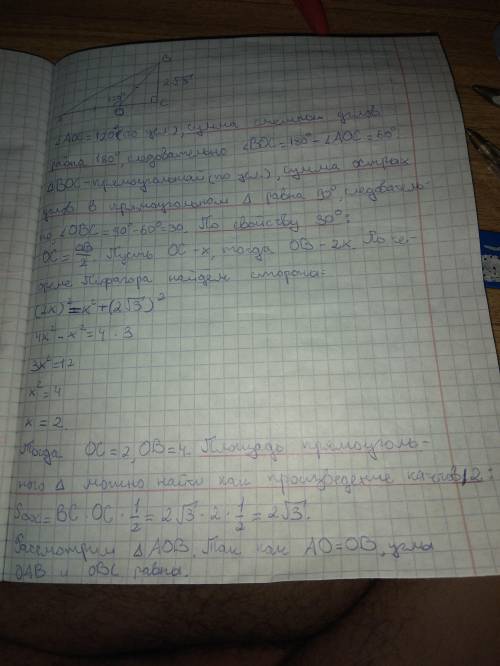 B
2√3
120°
O
C
∠AOC=120°(по усл.), сумма смежных углов
равна 180°, следовательно ∠BOC=180°-∠AOC=60°.
△BOC-прямоугольный (по усл.), сумма острых
углов в прямоугольном △ равна 90°, следователь-
но, ∠OBC=90°-60°=30. По свойству 30°:
OC=OB/2. Пусть OC-x, тогда OB-2x. По те-
ореме Пифагора найдем стороны:
(2x)²=x²+(2√3)²
4x²-x²=4·3
3x²=12
x²=4
x=2.
Тогда OC=2, OB=4. Площадь прямоуголь-
ного △ можно найти как произведение катетов/2:
=BC·OC·1/2=2√3·2·1/2=2√3.
Рассмотрим △AOB. Так как AO=OB, углы
OAB и OBC равны.